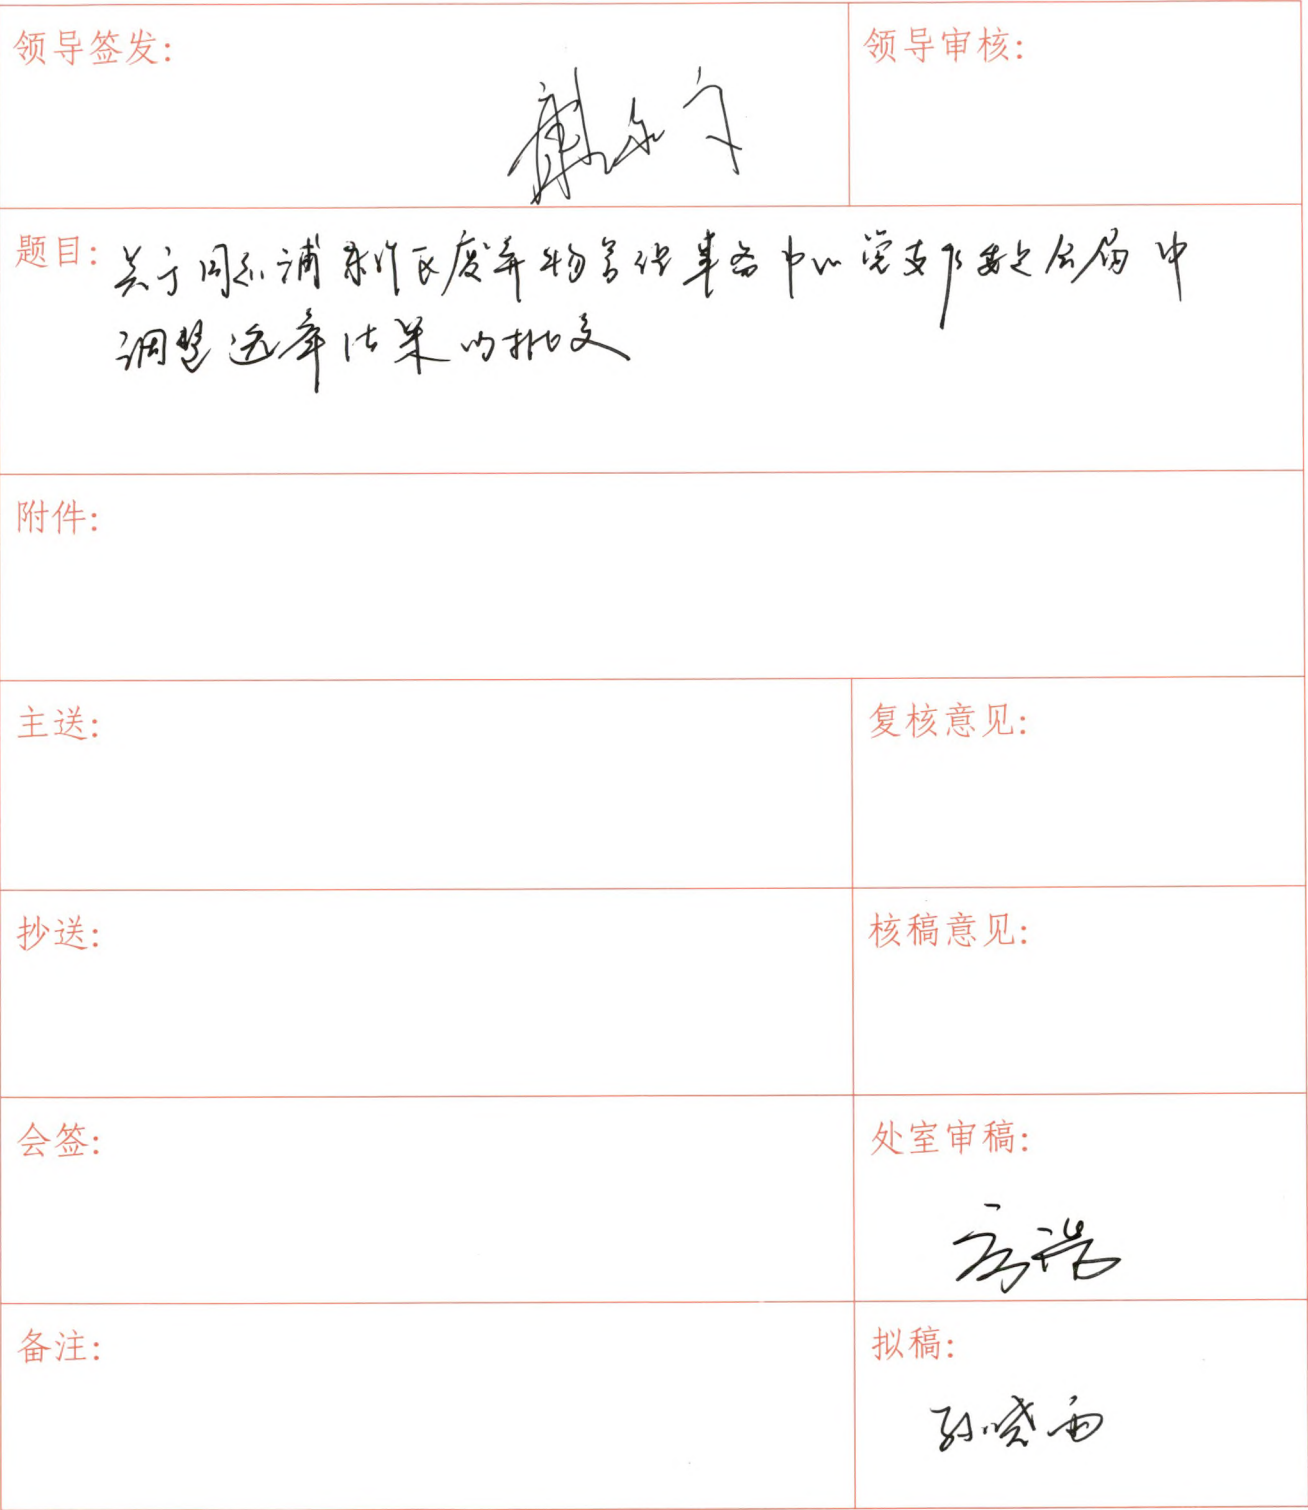 领导签发:
领导审核:
题目: 关于同意浦东新区废弃物管理事务中心党支部委员会届中
调整选举结果的批复
附件:
主送:
复核意见:
抄送:
核稿意见:
会签:
处室审稿:
备注:
拟稿:
孙晓雨